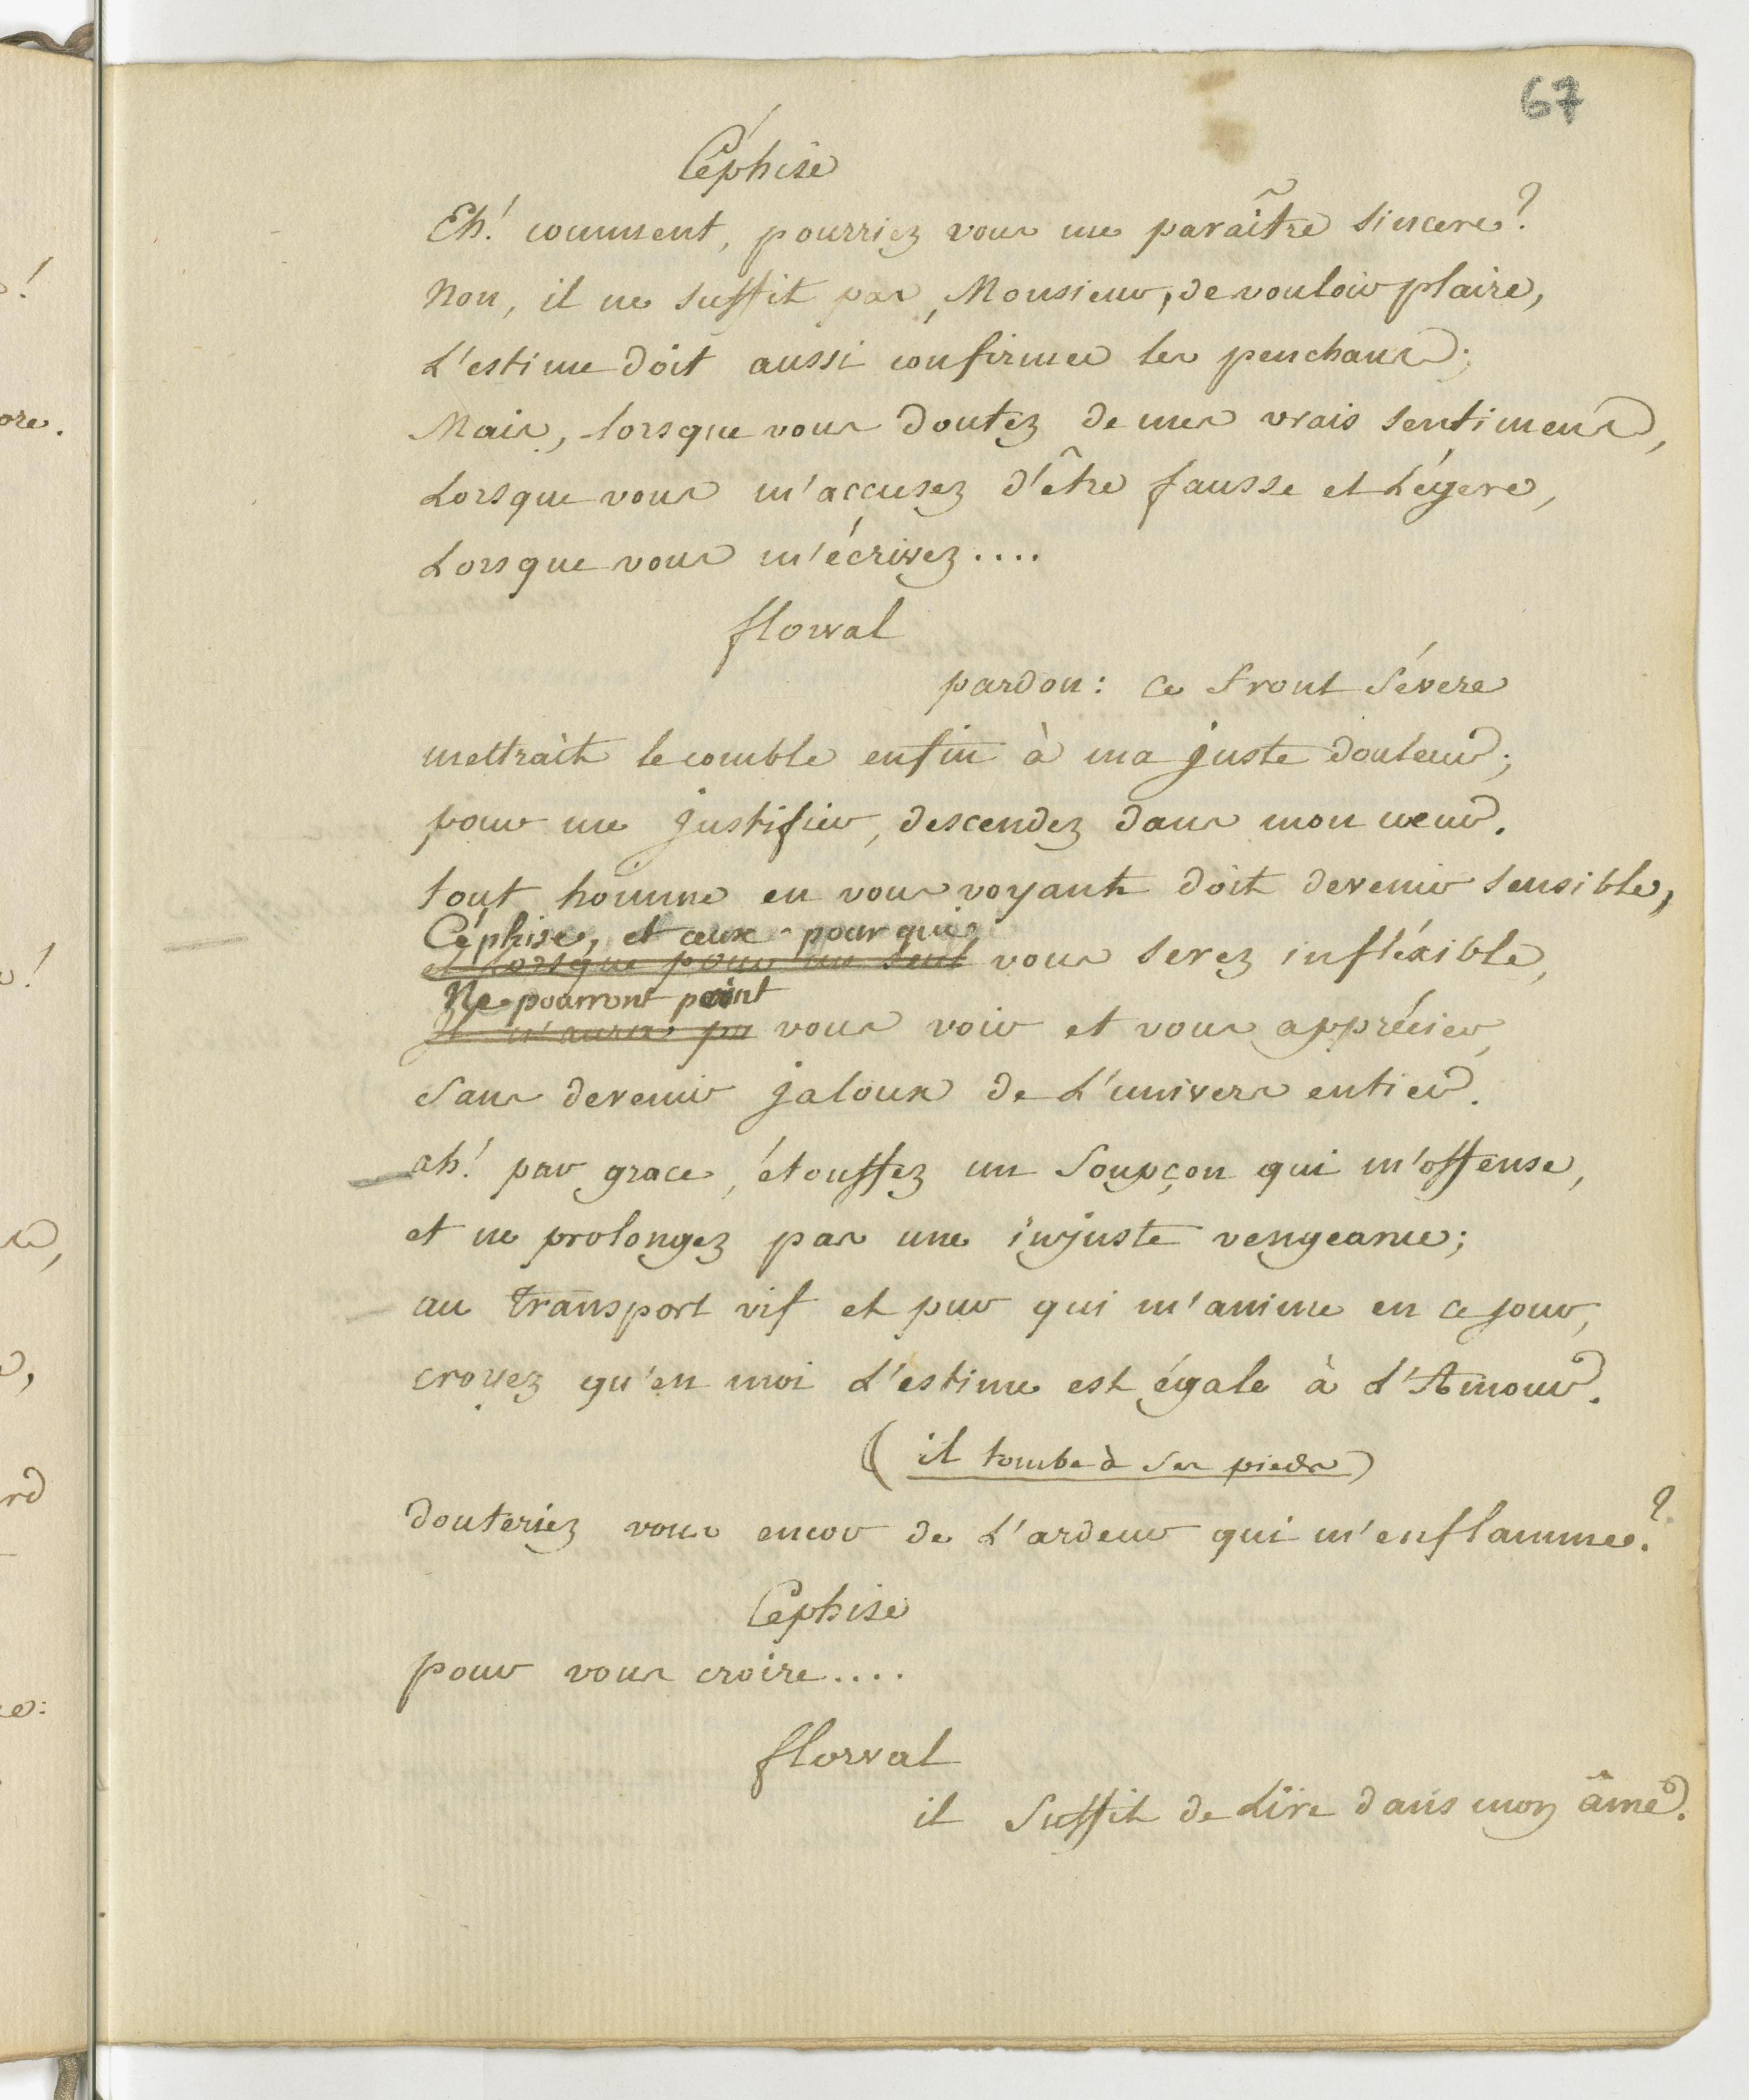 67
Céphise
Eh! comment, pourriez vous me paraître sincere?
Non, il ne suffit pas, Monsieur, de vouloir plaire,
L'estime doit aussi confirmer les penchans;
Mais, lorsque vous doutez de mes vrais sentimens,
Lorsque vous m'accusez d'être fausse et Légere,
Lorsque vous m'écrivez....
florval
pardon: ce front sévere
mettrait le comble enfin à ma juste douleur;
pour me justifier, descendez dans mon cœur.
tout homme en vous voyant doit devenir sensible,
Céphise, et ceux pour qui
et Lorsque pour un seul vous serez infléxible,
Ne pourront point
Il m'aura pu vous voir et vous apprécier,
Sans devenir jaloux de L'univers entier.
ah! par grace, étouffez un Soupçon qui m'offense,
et ne prolongez pas une injuste vengeance;
au transport vif et pur qui m'anime en ce jour,
croyez qu'en moi L'estime est égale à L'Amour.
(il tombe à ses pieds)
douteriez vous encor de L'ardeur qui m'enflamme?
Cephise
pour vous croire....
florval
il Suffit de Lire dans mon âme.
ore.
rd